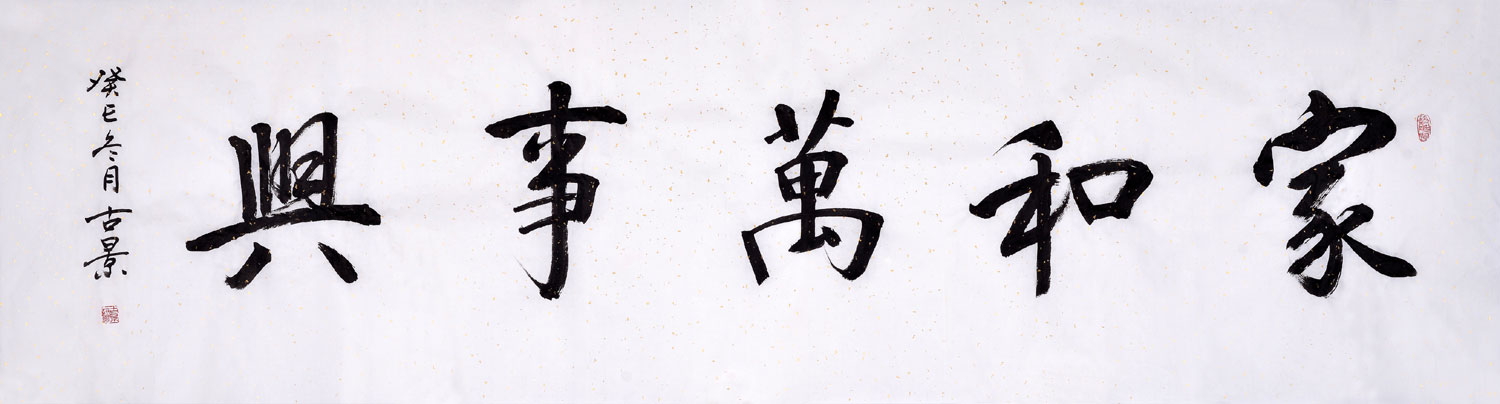 家和萬事興
癸巳冬月古景